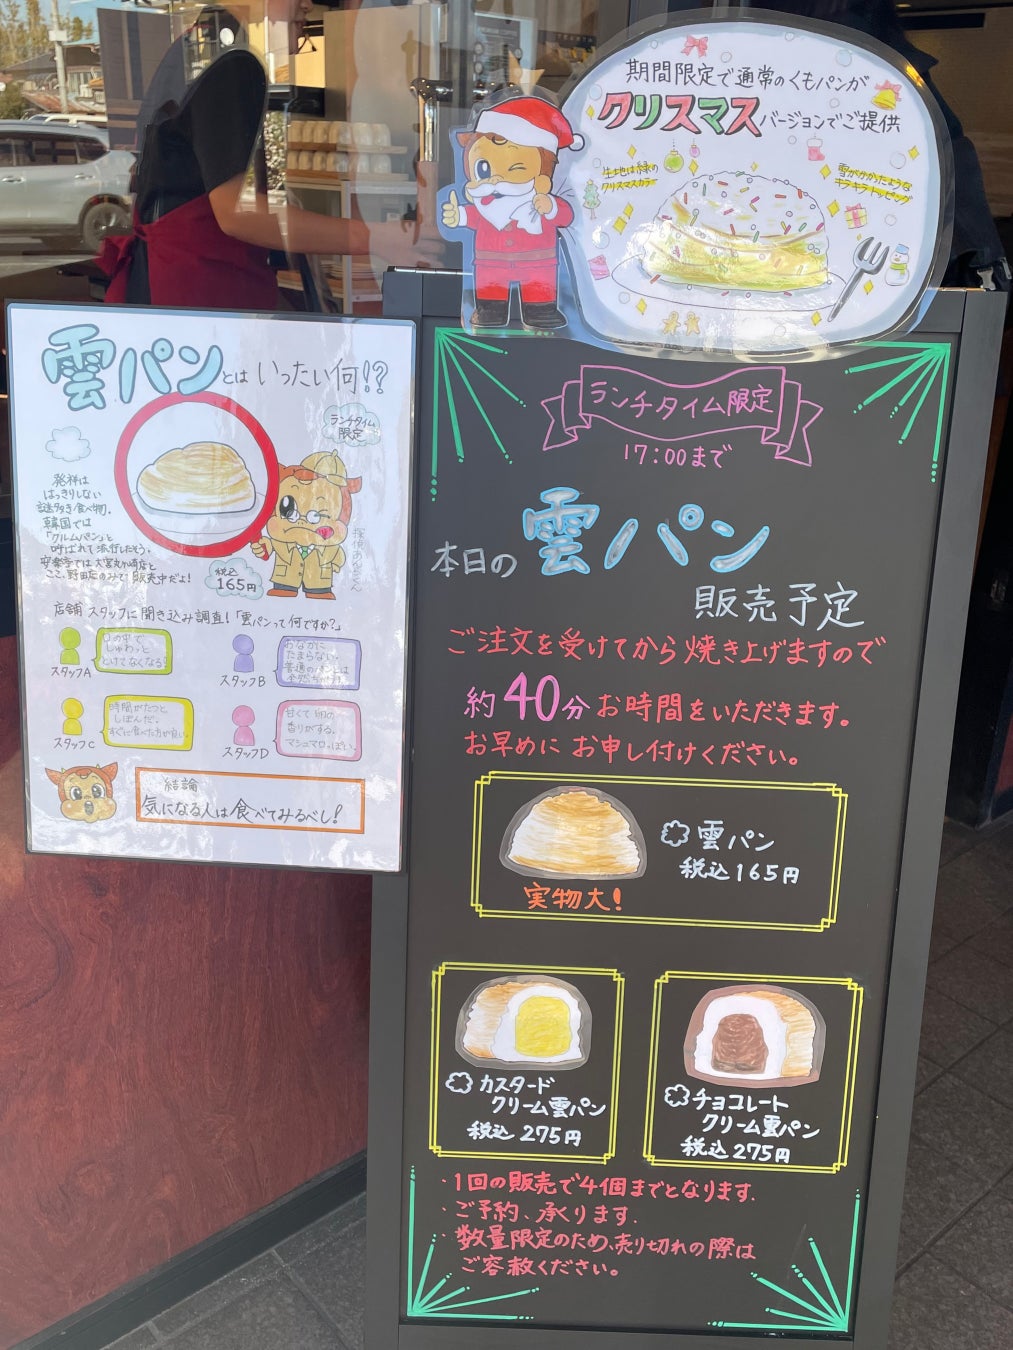 期間限定で通常のくもパンが
クリスマスバージョンでご提供
生地は緑の
クリスマスカラー
雪がかかったような
キラキラトッピング
雲パンとはいったい何!?
ランチタイム
限定
発祥は
はっきりしない
謎多き食べ物。
韓国では
「クルムパン」と
呼ばれて流行したそう。
ここ、野田店のみで販売中だよ!
税込
165円
探偵あんさん
店舗スタッフに聞き込み調査!「雲パンって何ですか?」
口の中で
しゅわっと
とけてなくなる!
スタッフA
おなかに
たまらない。
スタッフB
時間がたつと
しぼんだ。
すぐに食べた方が良い。
スタッフC
甘くて卵の
香りがする。
マシュマロっぽい。
スタッフD
結論
気になる人は食べてみるべし!
ランチタイム限定
17:00まで
本日の雲パン
販売予定
ご注文を受けてから焼き上げますので
約40分お時間をいただきます。
お早めにお申し付けください。
雲パン
税込165円
実物大!
カスタード
クリーム雲パン
税込275円
チョコレート
クリーム雲パン
税込275円
・1回の販売で4個までとなります.
・ご予約、承ります.
・数量限定のため、売り切れの際は
ご容赦ください。